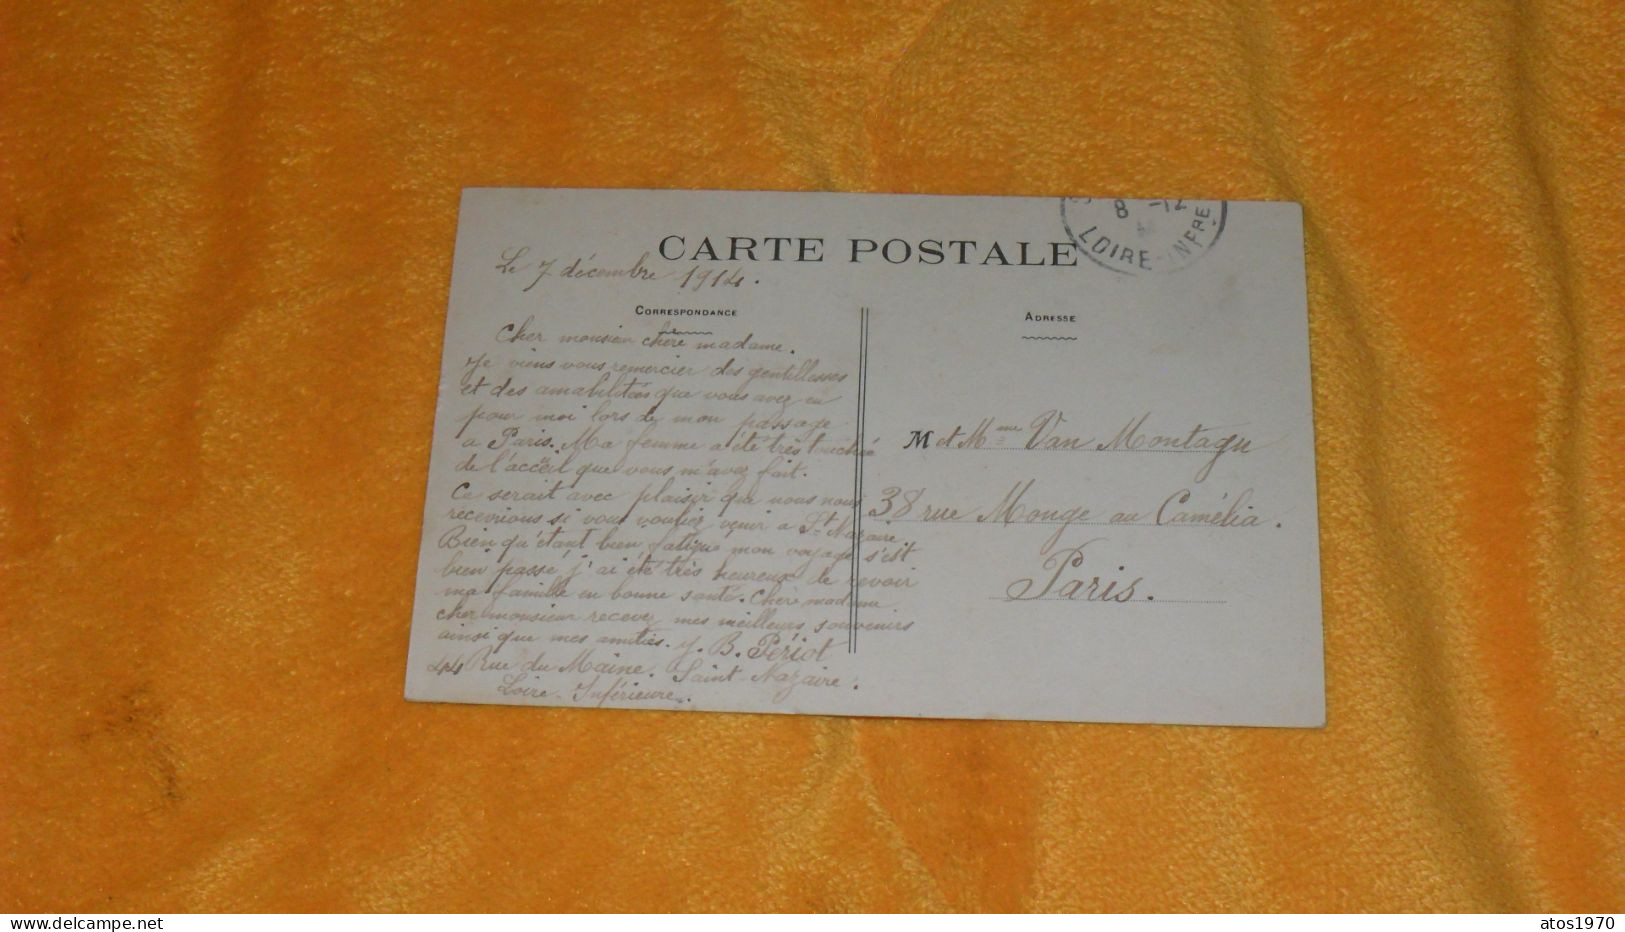 CARTE POSTALE
Le 7 décembre 1914.
CORRESPONDANCE
Cher monsieur chère madame.
Je viens vous remercier des gentillesses
et des amabilitées que vous avez eu
pour moi lors de mon passage
a Paris. Ma femme a été très touchée
de l'acceuil que vous m'avez fait.
Ce serait avec plaisir que nous nous
recevrions si vous vouliez venir a St Nazaire.
Bien qu'étant bien fatigué mon voyage s'est
bien passé j'ai été très heureux de revoir
ma famille en bonne santé. Chère madame
cher monsieur recevez mes meilleurs souvenirs
ainsi que mes amitiés. J. B. Périot
44 Rue du Maine. Saint-Nazaire.
Loire-Inférieure.
8 -12
LOIRE-INFRE
ADRESSE
M et Mme Van Montagu
38 rue Monge au Camélia.
Paris.
delcampe.net
atos1970